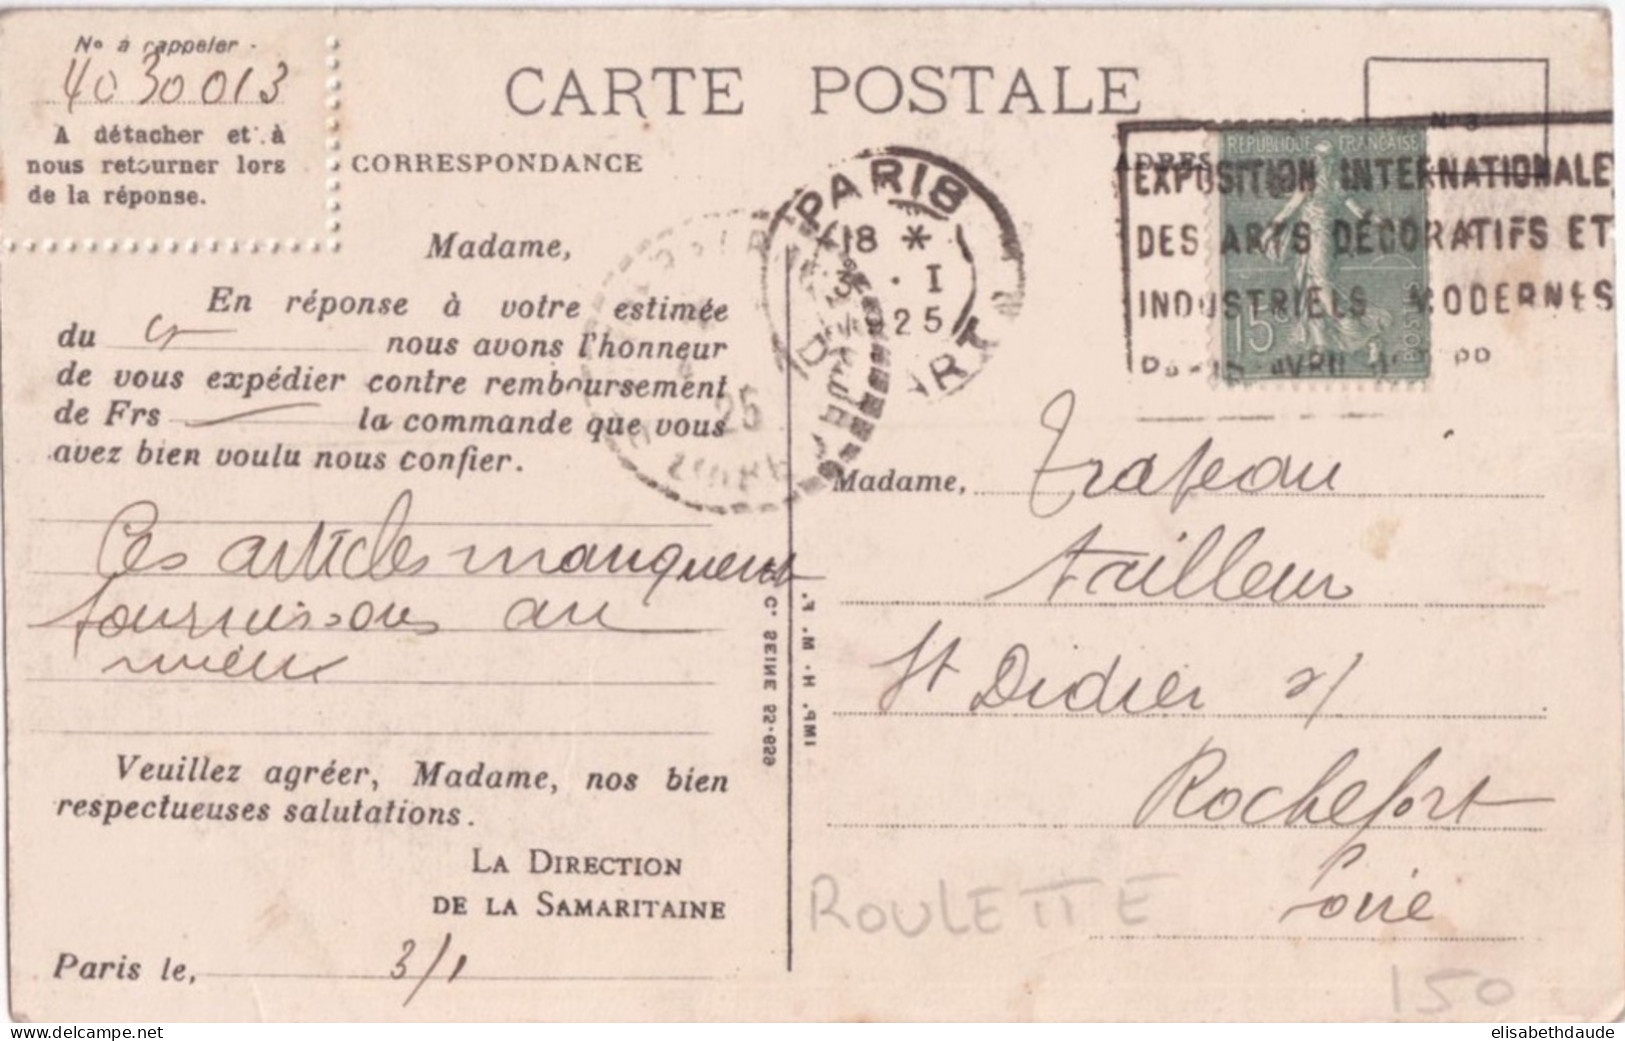 No à rappeler
4030013
A détacher et à
nous retourner lors
de la réponse.
CARTE POSTALE
CORRESPONDANCE
No 3
PARIS
18 *
3 . I
25
DÉPART
EXPOSITION INTERNATIONALE
DES ARTS DÉCORATIFS ET
INDUSTRIELS MODERNES
PARIS AVRIL
RÉPUBLIQUE FRANÇAISE
15c
POSTES
25
LOIRE
Madame,
En réponse à votre estimée
du nous avons l'honneur
de vous expédier contre remboursement
de Frs la commande que vous
avez bien voulu nous confier.
Ces articles manquent
fournissons au
mieux
Veuillez agréer, Madame, nos bien
respectueuses salutations.
LA DIRECTION
DE LA SAMARITAINE
Paris le, 3/1
IMP. H. M. F.
Cr SEINE 22-929
Madame, Trapeau
tailleur
St Didier s/
Rochefort
Loire
ROULETTE
150
elisabethdaude
www.delcampe.net